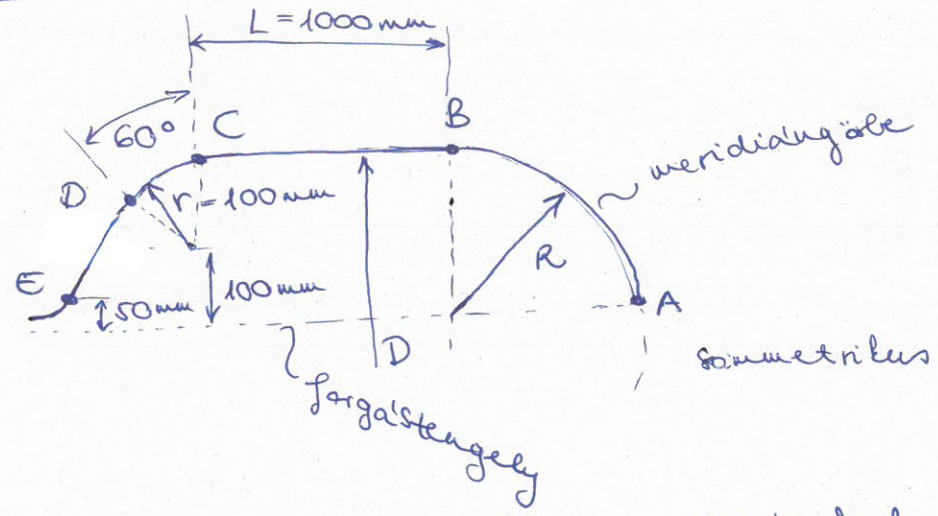 L = 1000 mm
60°
C
B
meridiángörbe
D
r = 100 mm
R
E
50 mm
100 mm
A
D
szimmetrikus
forgástengely